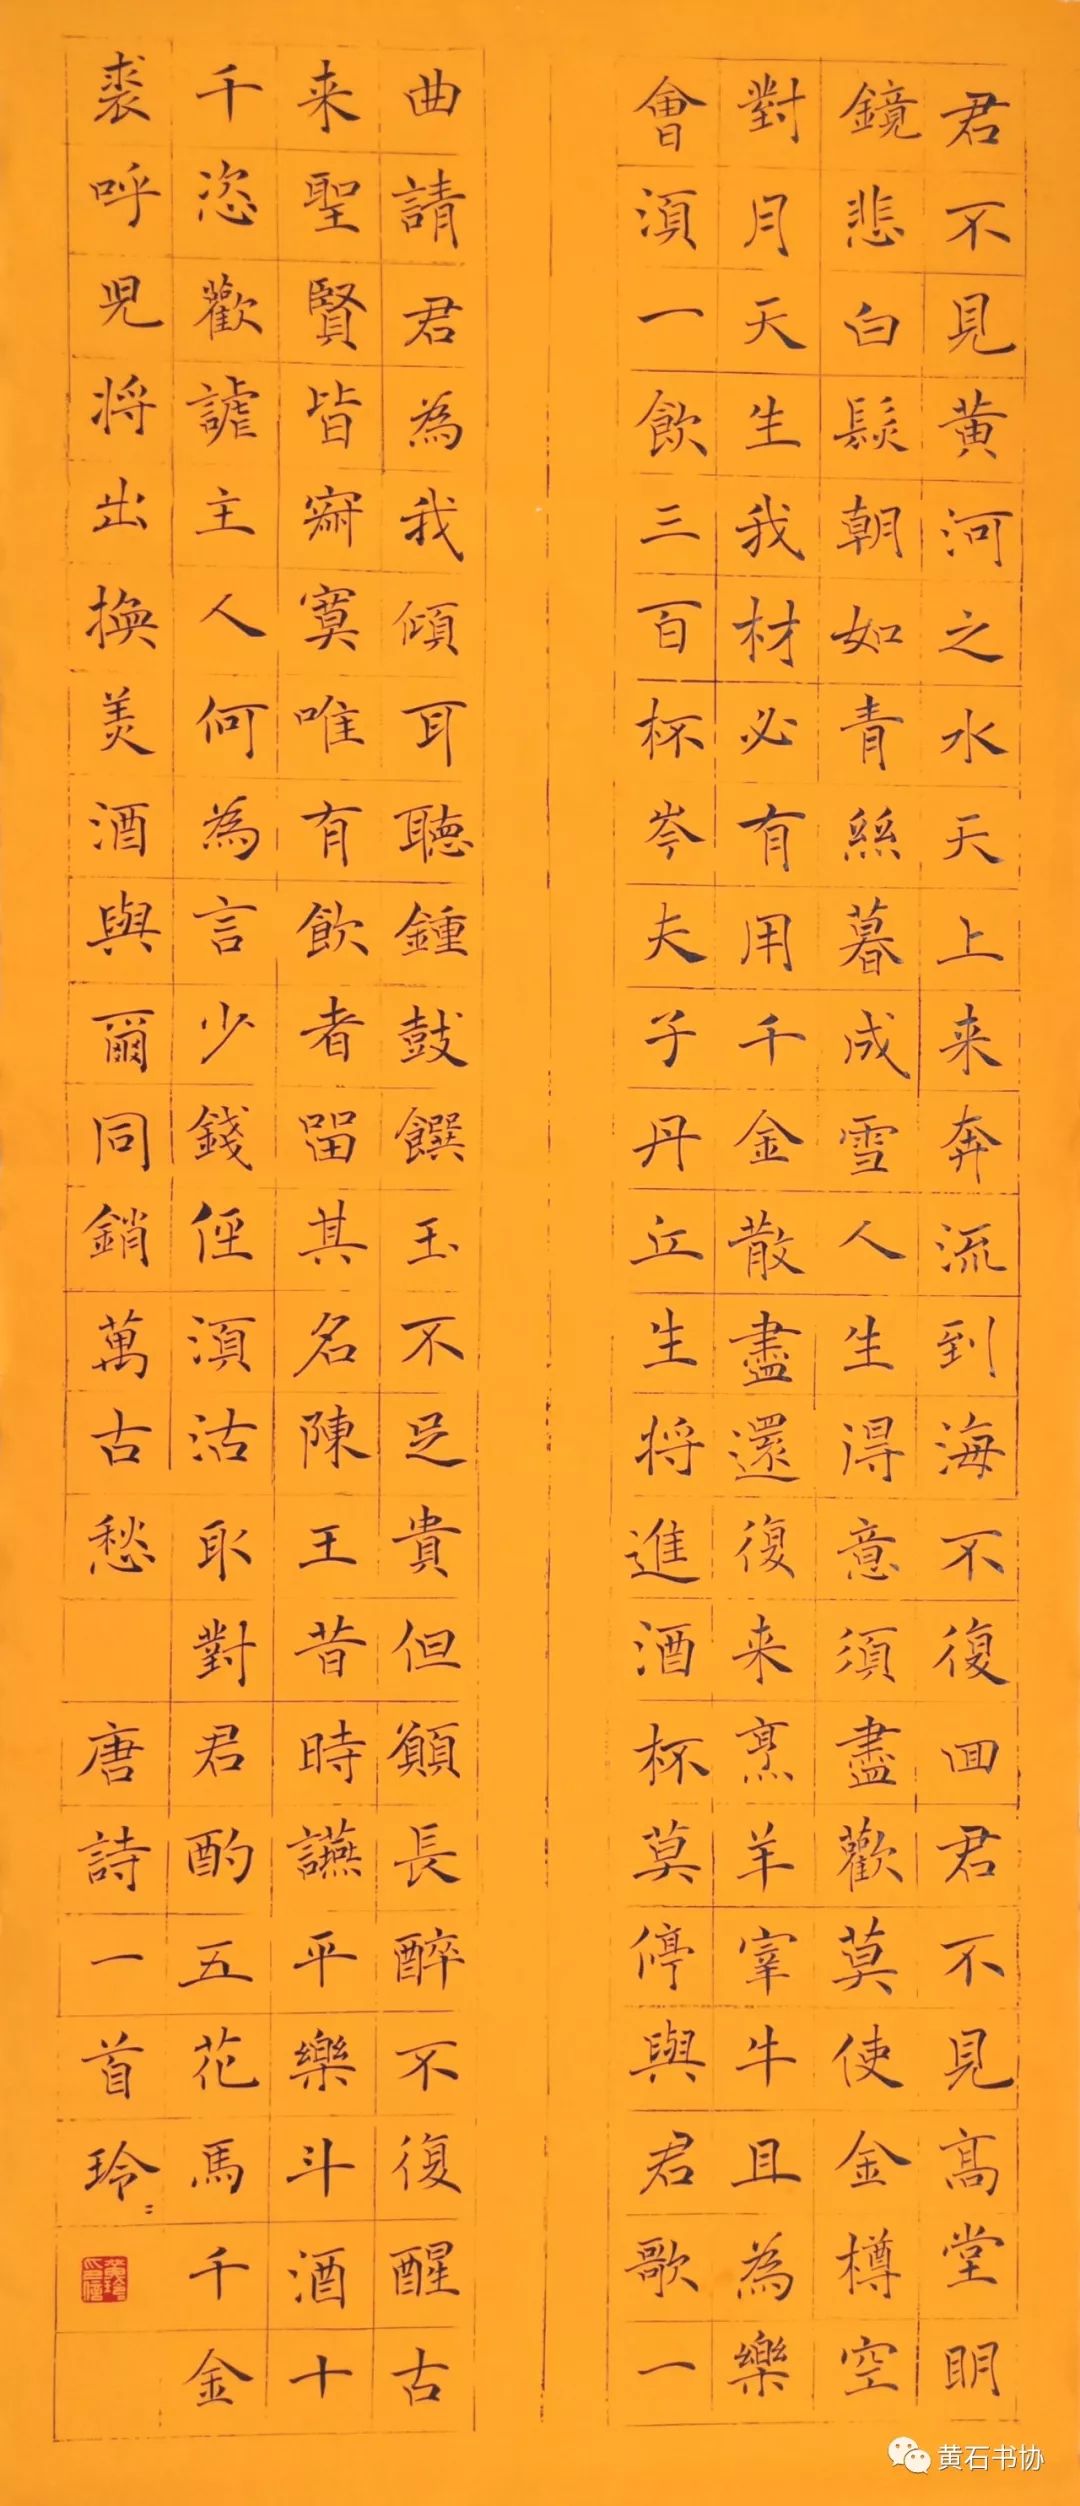 君不見黄河之水天上来奔流到海不復囬君不見髙堂眀
鏡悲白髮朝如青絲暮成雪人生得意須盡歡莫使金樽空
對月天生我材必有用千金散盡還復来烹羊宰牛且為樂
會湏一飲三百杯岑夫子丹丘生将進酒杯莫停與君歌一
曲請君為我傾耳聽鍾鼓饌玉不足貴但願長醉不復醒古
来聖賢皆寂寞唯有飲者留其名陳王昔時讌平樂斗酒十
千恣歡謔主人何為言少錢徑湏沽取對君酌五花馬千金
裘呼兒将出換美酒與爾同銷萬古愁 唐詩一首玲〻
黄石书协